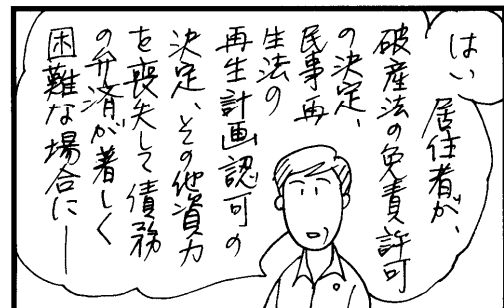 はい
居住者が、
破産法の免責許可
の決定、
民事再
生法の
再生計画認可の
決定、その他資力
を喪失して債務
の弁済が著しく
困難な場合に―